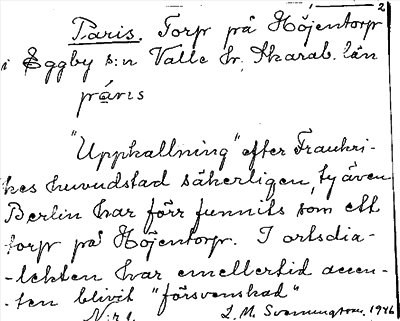 2
Paris. Torp på Höjentorp
i Eggby s:n Valle hr, Skarab. län
páris
"Uppkallning" efter Frankri-
kes huvudstad säkerligen, ty även
Berlin har förr funnits som ett
torp på Höjentorp. I ortsdia-
-lekten har emellertid accen-
-ten blivit "försvenskad"
N:r 1. L. M. Svenungsson. 1946